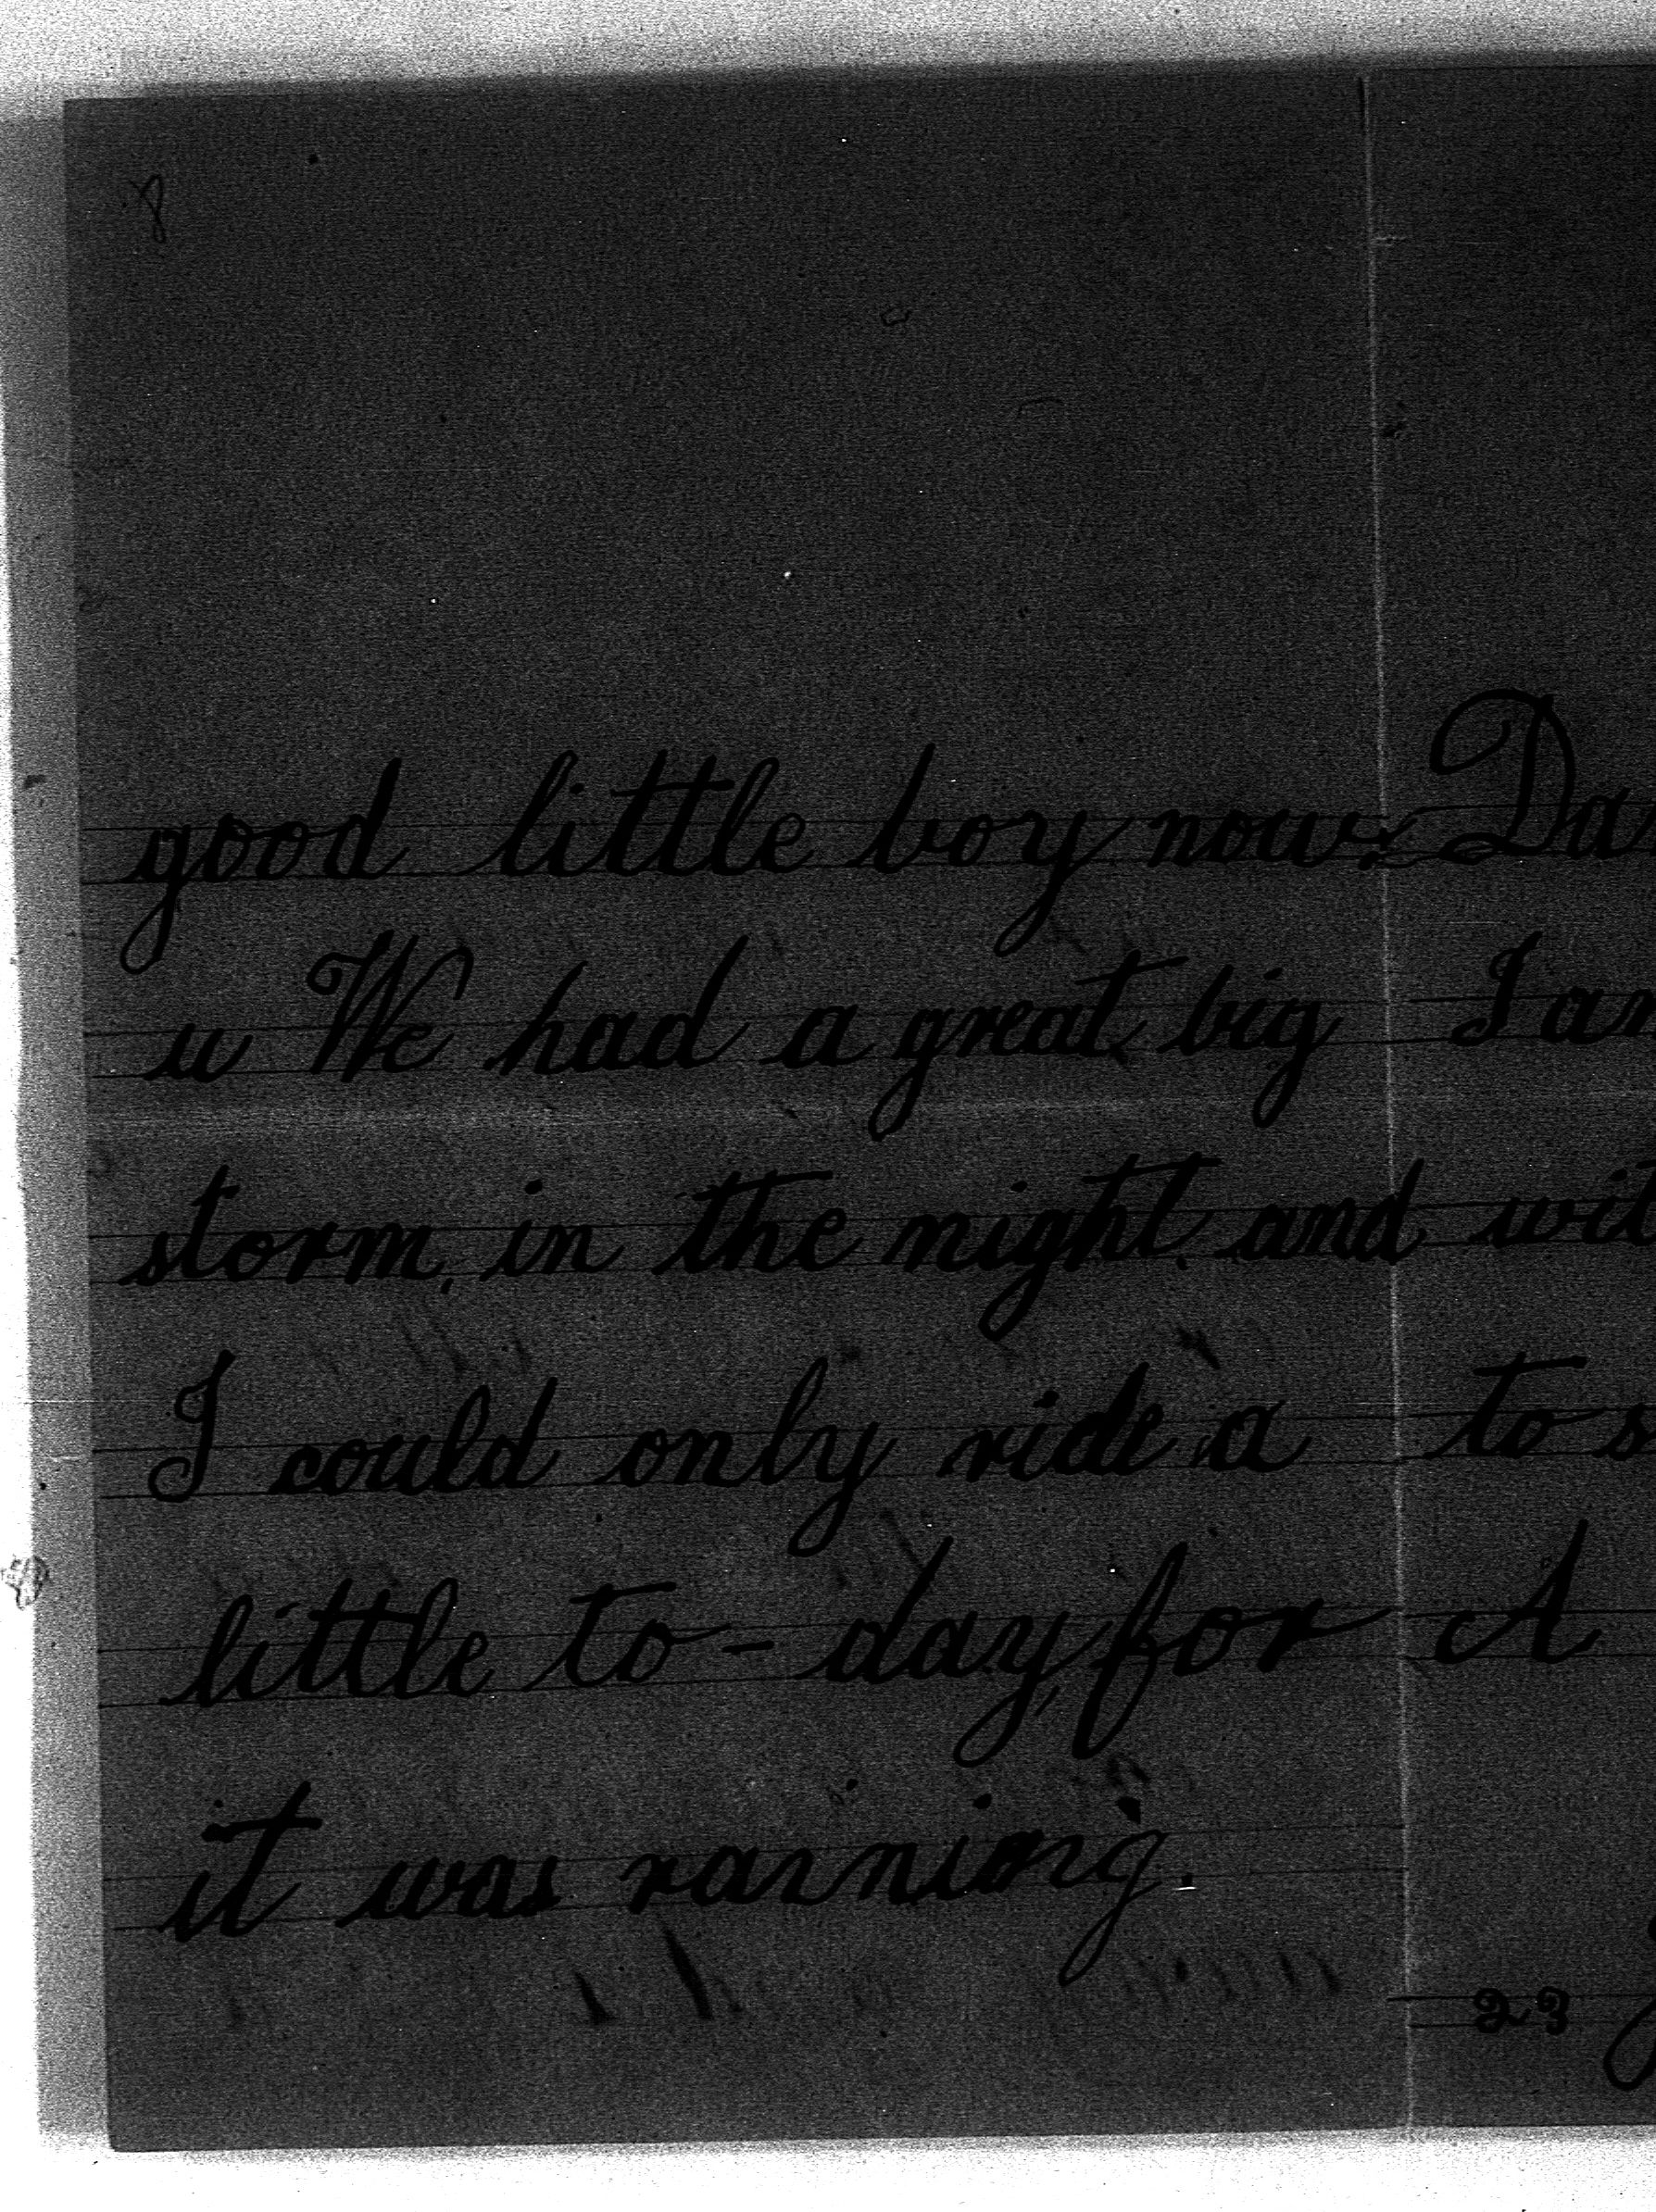 good little boy now.
u We had a great big
storm, in the night and
I could only ride a
little to-day, for
it was raining.
I
wit
to s
A
23